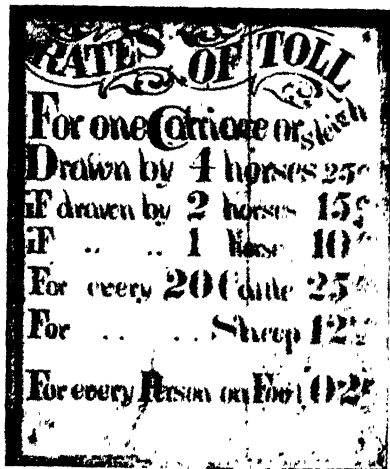 RATES OF TOLL
For one Carriage or sleigh
Drawn by 4 horses 25c
if drawn by 2 horses 15c
if .. .. 1 Horse 10c
For every 20 Cattle 25c
For .. .. Sheep 12½
For every Person on Foot 02c